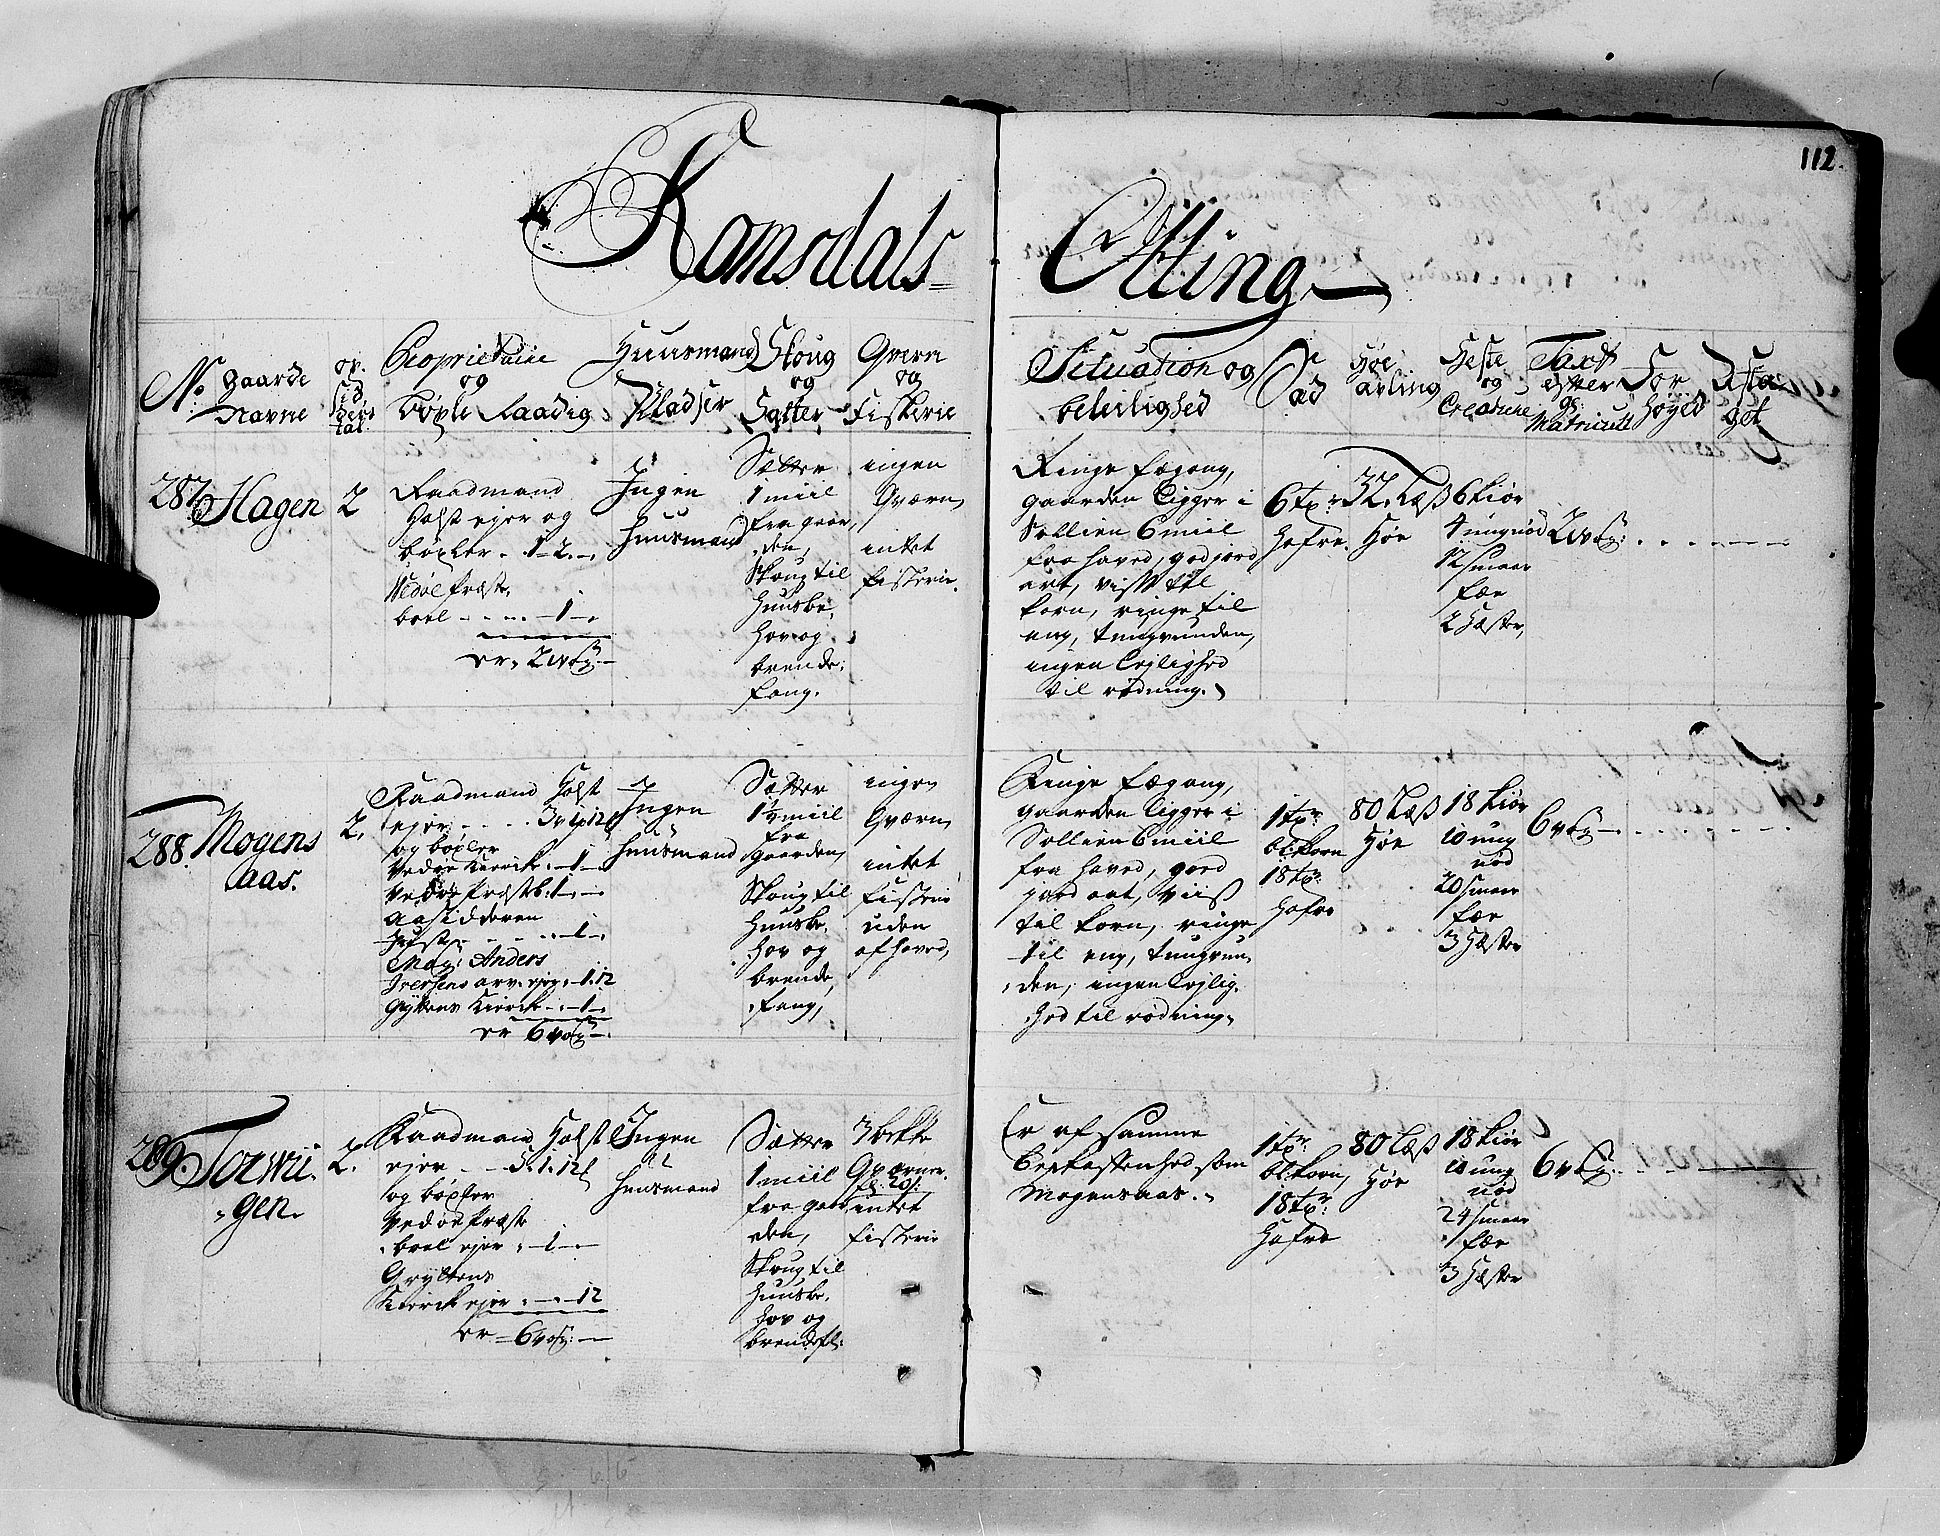 112.
Romsdals-
Otting
No
Gaarde
Navne
op.
Sid
Proprietairie
og
bøxle Raadig
Huusmand
Pladser
Skoug
og
Sætter
Qvern
og
Fiskerie
Situation og
beleilighed
Sæd
Høe
avling
Heste
og
Creature
Taxt
efter
Matricul
For
høyed
Afta
get
287 Hagen
2
Raadmand
Holst ejer og
bøxler - 1-2-
Vedøe Præste,
boel - - - - 1 -
er 2 vog -
Ingen
huusmand
Sætter
1 miil
fra gaar,
den,
Skoug til
huusbe,
hov og
brende,
fang.
ingen
Qværn,
intet
fiskerie.
Ringe fægang,
gaarden ligger i
Sollien 6 miil
fra haved, god jord
art, viss til
korn, ringe til
eng, tungvunden,
ingen lejlighed
til rødning.
6 tr
hafre
32 Læs
Høe
6 kiør
4 ungnød
12 smaae
fæe
2 Hæster,
2 vog
288 Mogens
aas.
2,
Raadmand Holst
ejer - - - -
og bøxler
Vedøe Kierche - 1 -
Vedøe Præstb: 1 -
Aasidderen
- - - 1 -
Mag: Anders
Iversens arv. ejer - 1.12
Gryttens Kierche - 1 -
er 6 vog -
Ingen
huusmand
Sætter
1½ miil
fra
gaarden,
Skoug til
huusbe,
hov og
brende,
fang,
ingen
Qværn,
intet
fiskerie
uden
af haved,
Ringe fægang,
gaarden ligger i
Sollien 6 miil
fra haved, goed
jord art, viiss
til korn, ringe
til eng, tungvun,
den, ingen lejlig,
hed til rødning.
1 tr
bl:korn
18 tr
hafre
80 Læs
Høe
18 kiør
10 ung
nød
20 smaae
fæe
3 Hæster
6 vog
289. Torwii,
gen.
2.
Raadmand Holst
ejer - -
og bøxler
Vedøe Præste
boel ejer - 1 -
Gryttens
Kierche ejer - - 12
er - 6 vog -
Ingen
huusmand
Sætter
1 miil
fra gaar
den,
Skoug til
huusbe,
hov og
brendefl:
3 bekke
Qværner
intet
fiskerie
Er af samme
beskaffenhed som
Mogensaas.
1 tr
bl:korn,
18 tr:
hafre
80 Læs
Høe
18 kiør
10 ung
nød
24 smaae
fæe
3 Hæster
6 vog